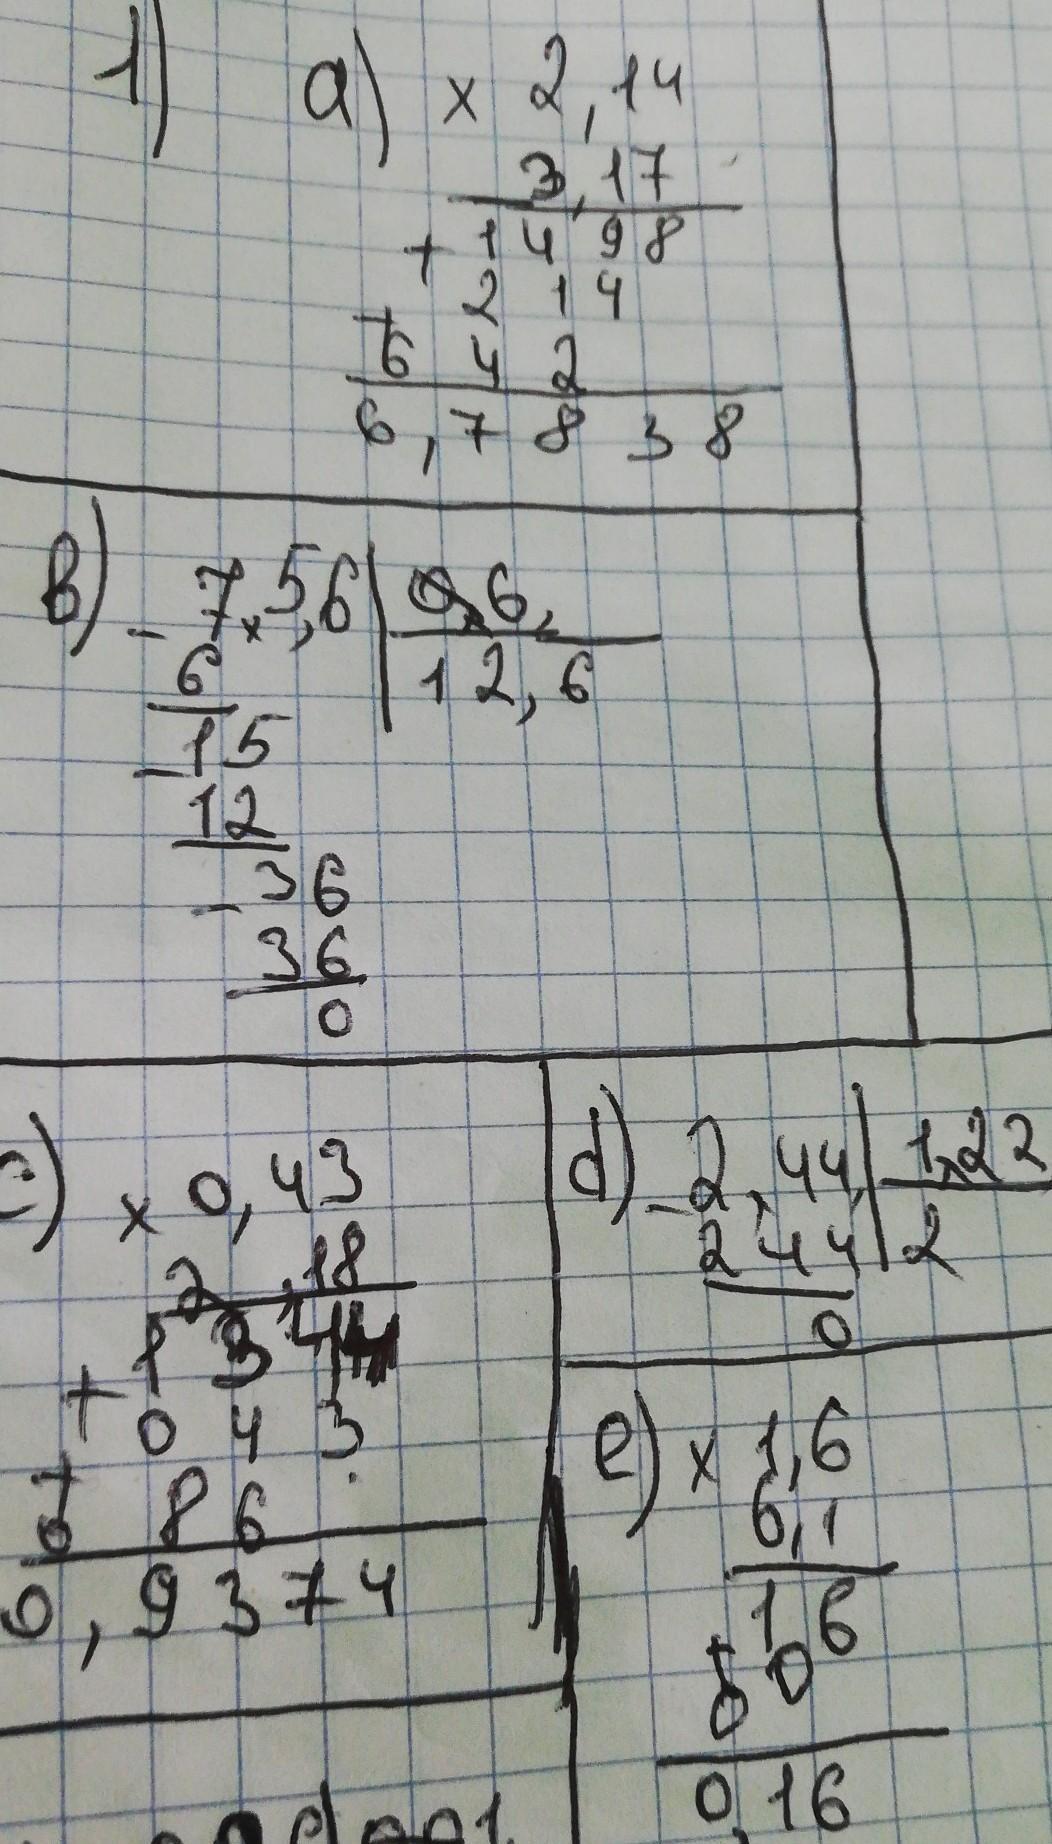 1) a) × 2,14
3,17
+ 1 4 9 8
2 1 4
+
6 4 2
6,7 8 3 8
b) - 7,5,6 0,6,
6 1 2, 6
- 15
12
- 36
36
0
c) × 0,43
2,18
+ 1 3 4 4
0 4 3
+
0 8 6
0,9374
d) - 2,44, 1,22
244 2
0
e) × 1,6
6,1
1 6
+ 0 0
0,16